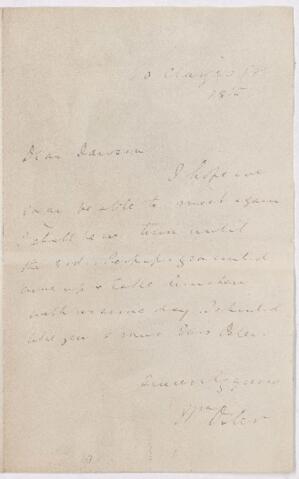 Clarges St
18th
Dear Dawson
I hope we
may be able to meet again
I shall be in town until
the 23d. Perhaps you could
come up & take luncheon
with us some day. I should
like you to meet Mrs Osler.
Sincerely yours
Wm Osler